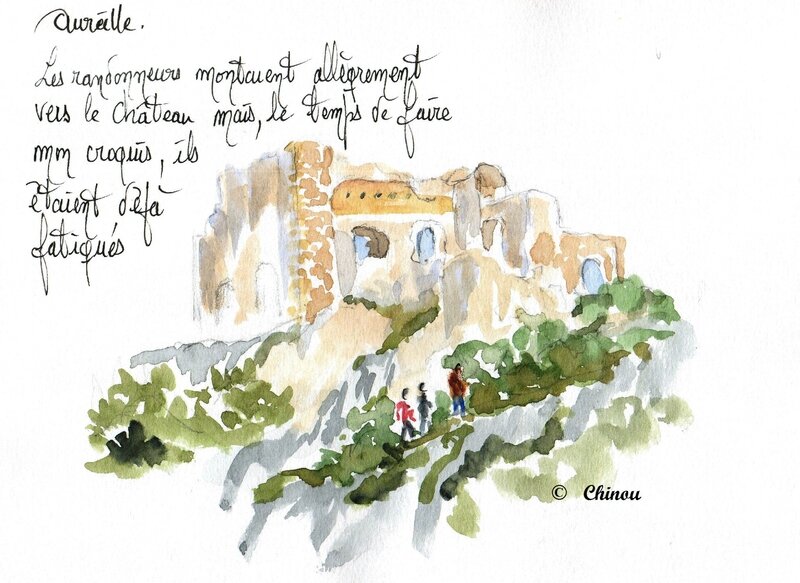 Aureille.
Les randonneurs montaient allègrement
vers le château mais, le temps de faire
mon croquis, ils
étaient déjà
fatigués
© Chinou